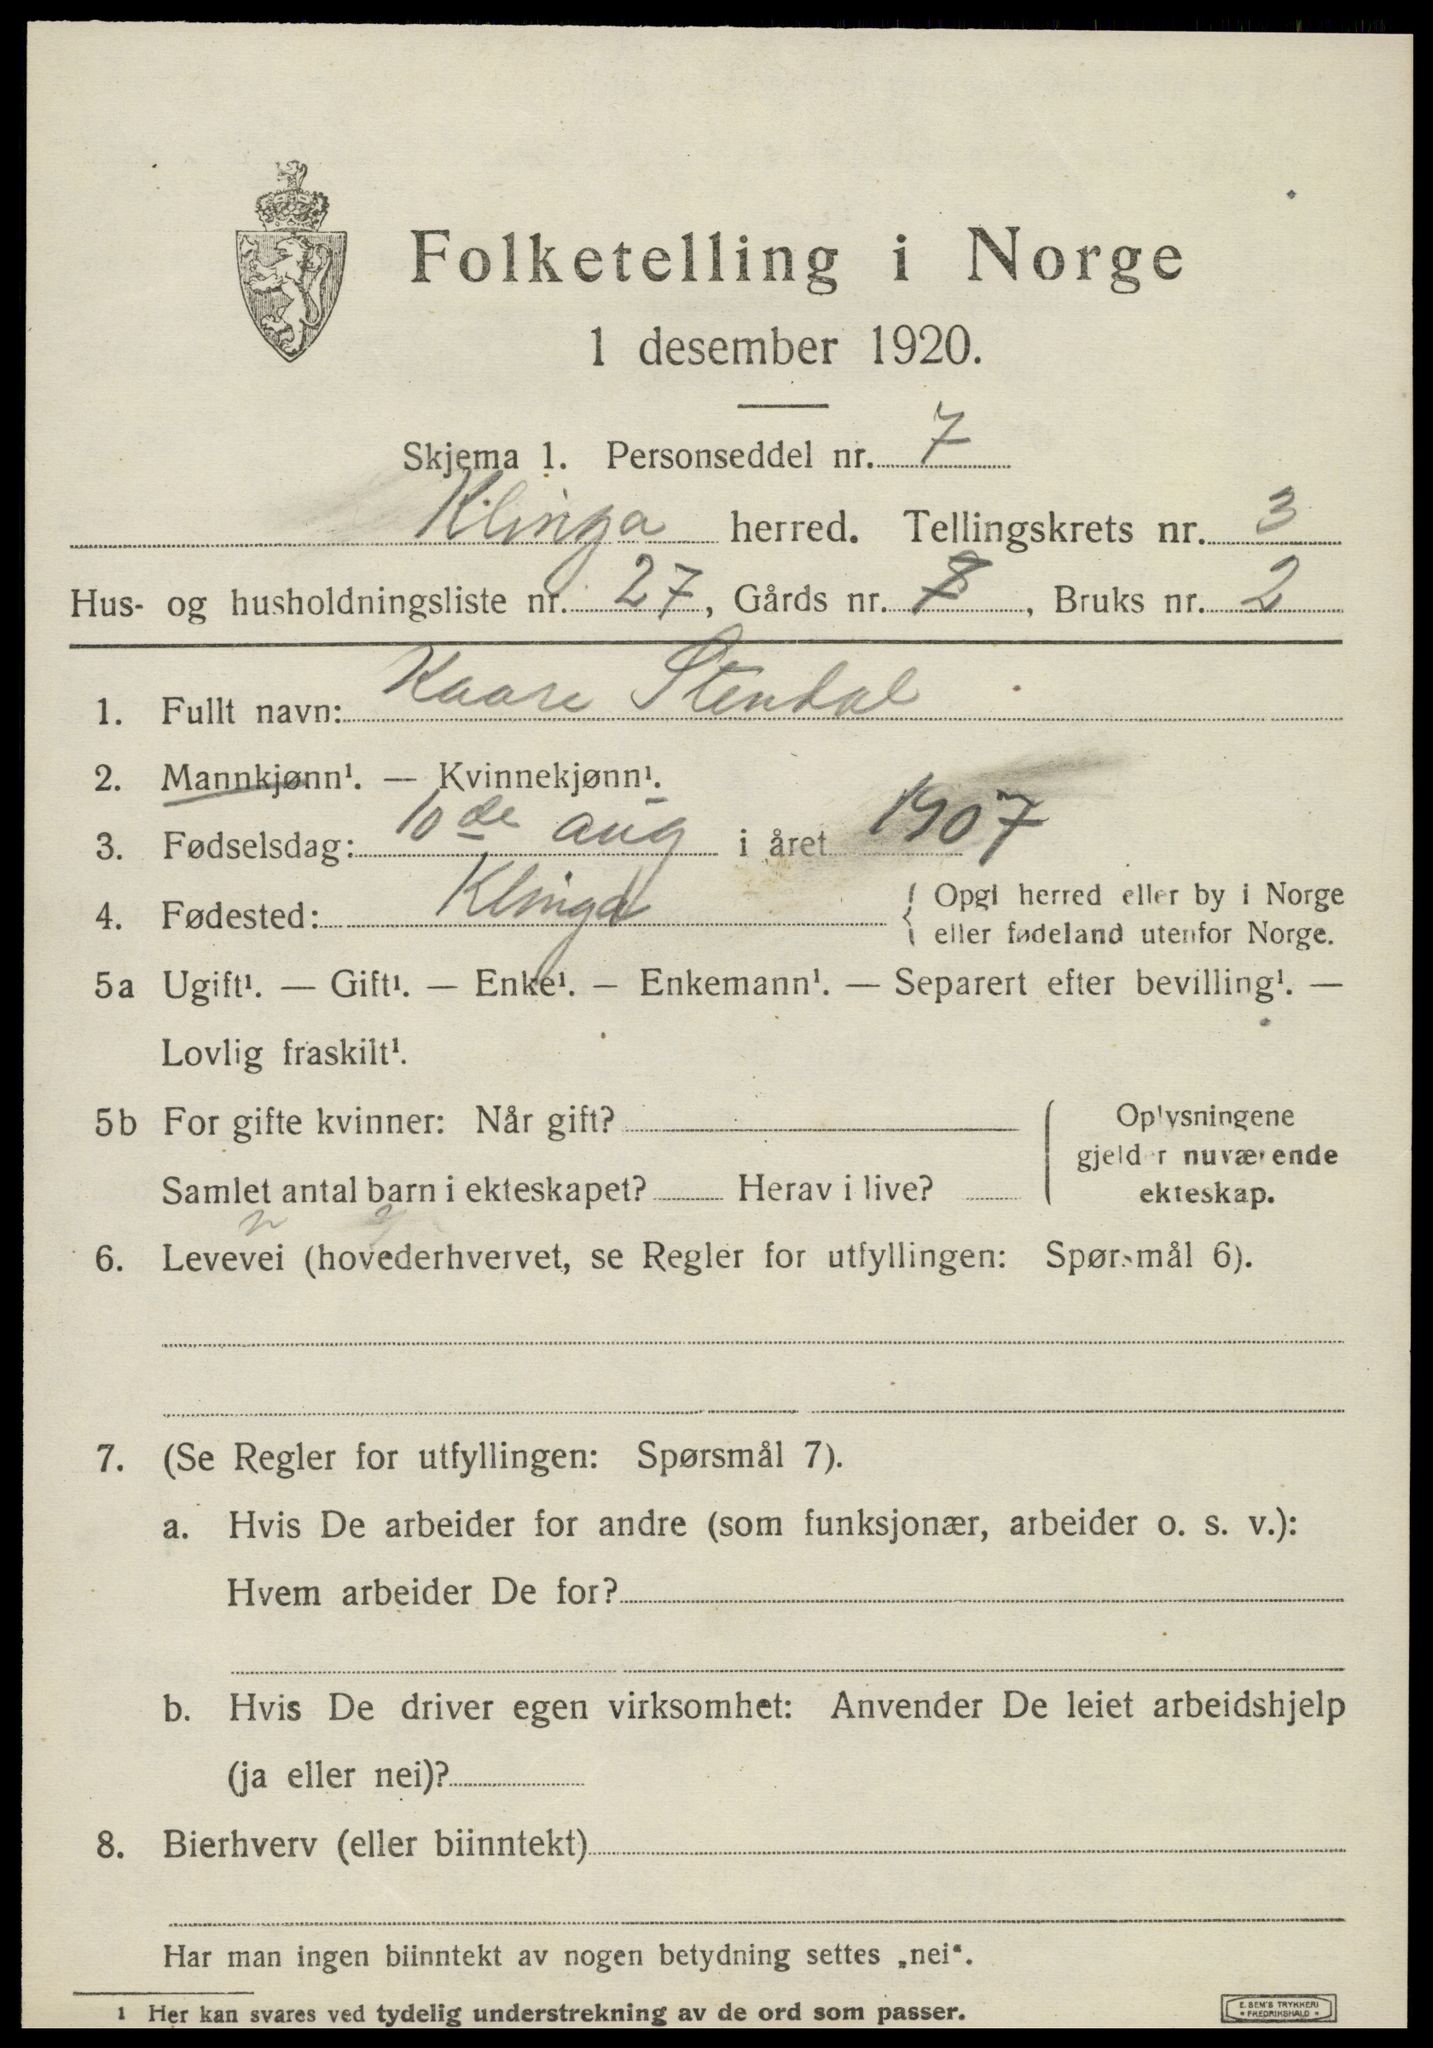 Folketelling i Norge
1 desember 1920.
Skjema 1. Personseddel nr. 7
Klinga herred. Tellingskrets nr. 3
Hus- og husholdningsliste nr. 27, Gårds nr. , Bruks nr. 2
1. Fullt navn: Kaare Stendal
2. Mannkjønn¹. — Kvinnekjønn¹.
3. Fødselsdag: 10de aug i året 1907
4. Fødested: Klinga { Opgi herred eller by i Norge
eller fødeland utenfor Norge.
5a Ugift¹. — Gift¹. — Enke¹. — Enkemann¹. — Separert efter bevilling¹. —
Lovlig fraskilt¹.
5b For gifte kvinner: Når gift? { Oplysningene
gjelder nuværende
Samlet antal barn i ekteskapet? Herav i live? ekteskap.
6. Levevei (hovederhvervet, se Regler for utfyllingen: Spørsmål 6).
7. (Se Regler for utfyllingen: Spørsmål 7).
a. Hvis De arbeider for andre (som funksjonær, arbeider o. s. v.):
Hvem arbeider De for?
b. Hvis De driver egen virksomhet: Anvender De leiet arbeidshjelp
(ja eller nei)?
8. Bierhverv (eller biinntekt)
Har man ingen biinntekt av nogen betydning settes „nei“.
1 Her kan svares ved tydelig understrekning av de ord som passer.
E. SEM'S TRYKKERI
FREDRIKSHALD